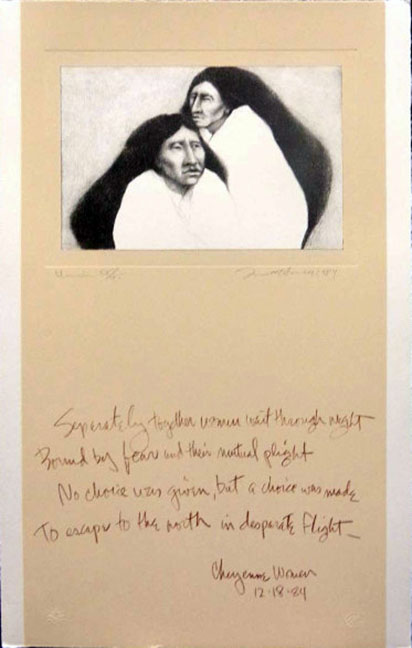 Separately together women wait through night
Bound by fear and their mutual plight
No choice was given, but a choice was made
To escape to the north in desperate flight_
Cheyenne Women
12-18-84